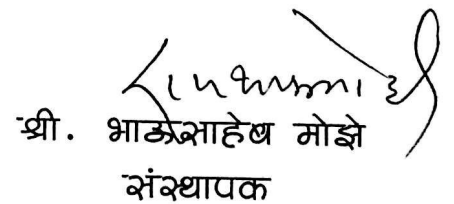 श्री. भाऊसाहेब मोझे
संस्थापक